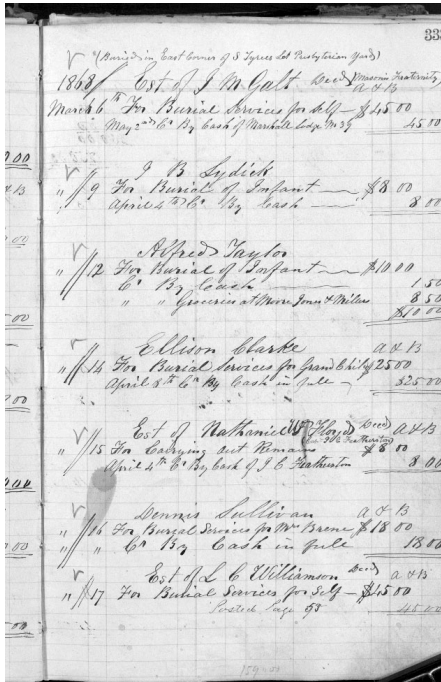 333
(Buried in East Corner of S Tyrees Lot Presbyterian Yard)
1868 Est of J M Galt Decd Masonic Fraternity A & B
March 6th For Burial Services for self $45 00
May 2nd Cr By Cash of Marshall Lodge No 39 45 00
J B Lydick
" 9 For Burial of Infant $8 00
April 4th Cr By Cash 8 00
Alfred Taylor
" 12 For Burial of Infant $10 00
Cr By Cash 1 50
" " Groceries at Moore Jones & Millers 8 50
$10 00
Ellison Clarke A & B
" 14 For Burial Services for Grand Child $25 00
April 8th Cr By Cash in full $25 00
Est of Nathaniel W Floyd Decd A & B
J C Featherston
" 15 For Carrying out Remains $8 00
April 4th Cr By Cash of J C Featherston 8 00
Dennis Sullivan A & B
" 16 For Burial Services for Mrs Brene $18 00
" " Cr By Cash in full 18 00
Est of L C Williamson Decd A & B
" 17 For Burial Services for Self $45 00
Posted Page 98 45 00
159 00